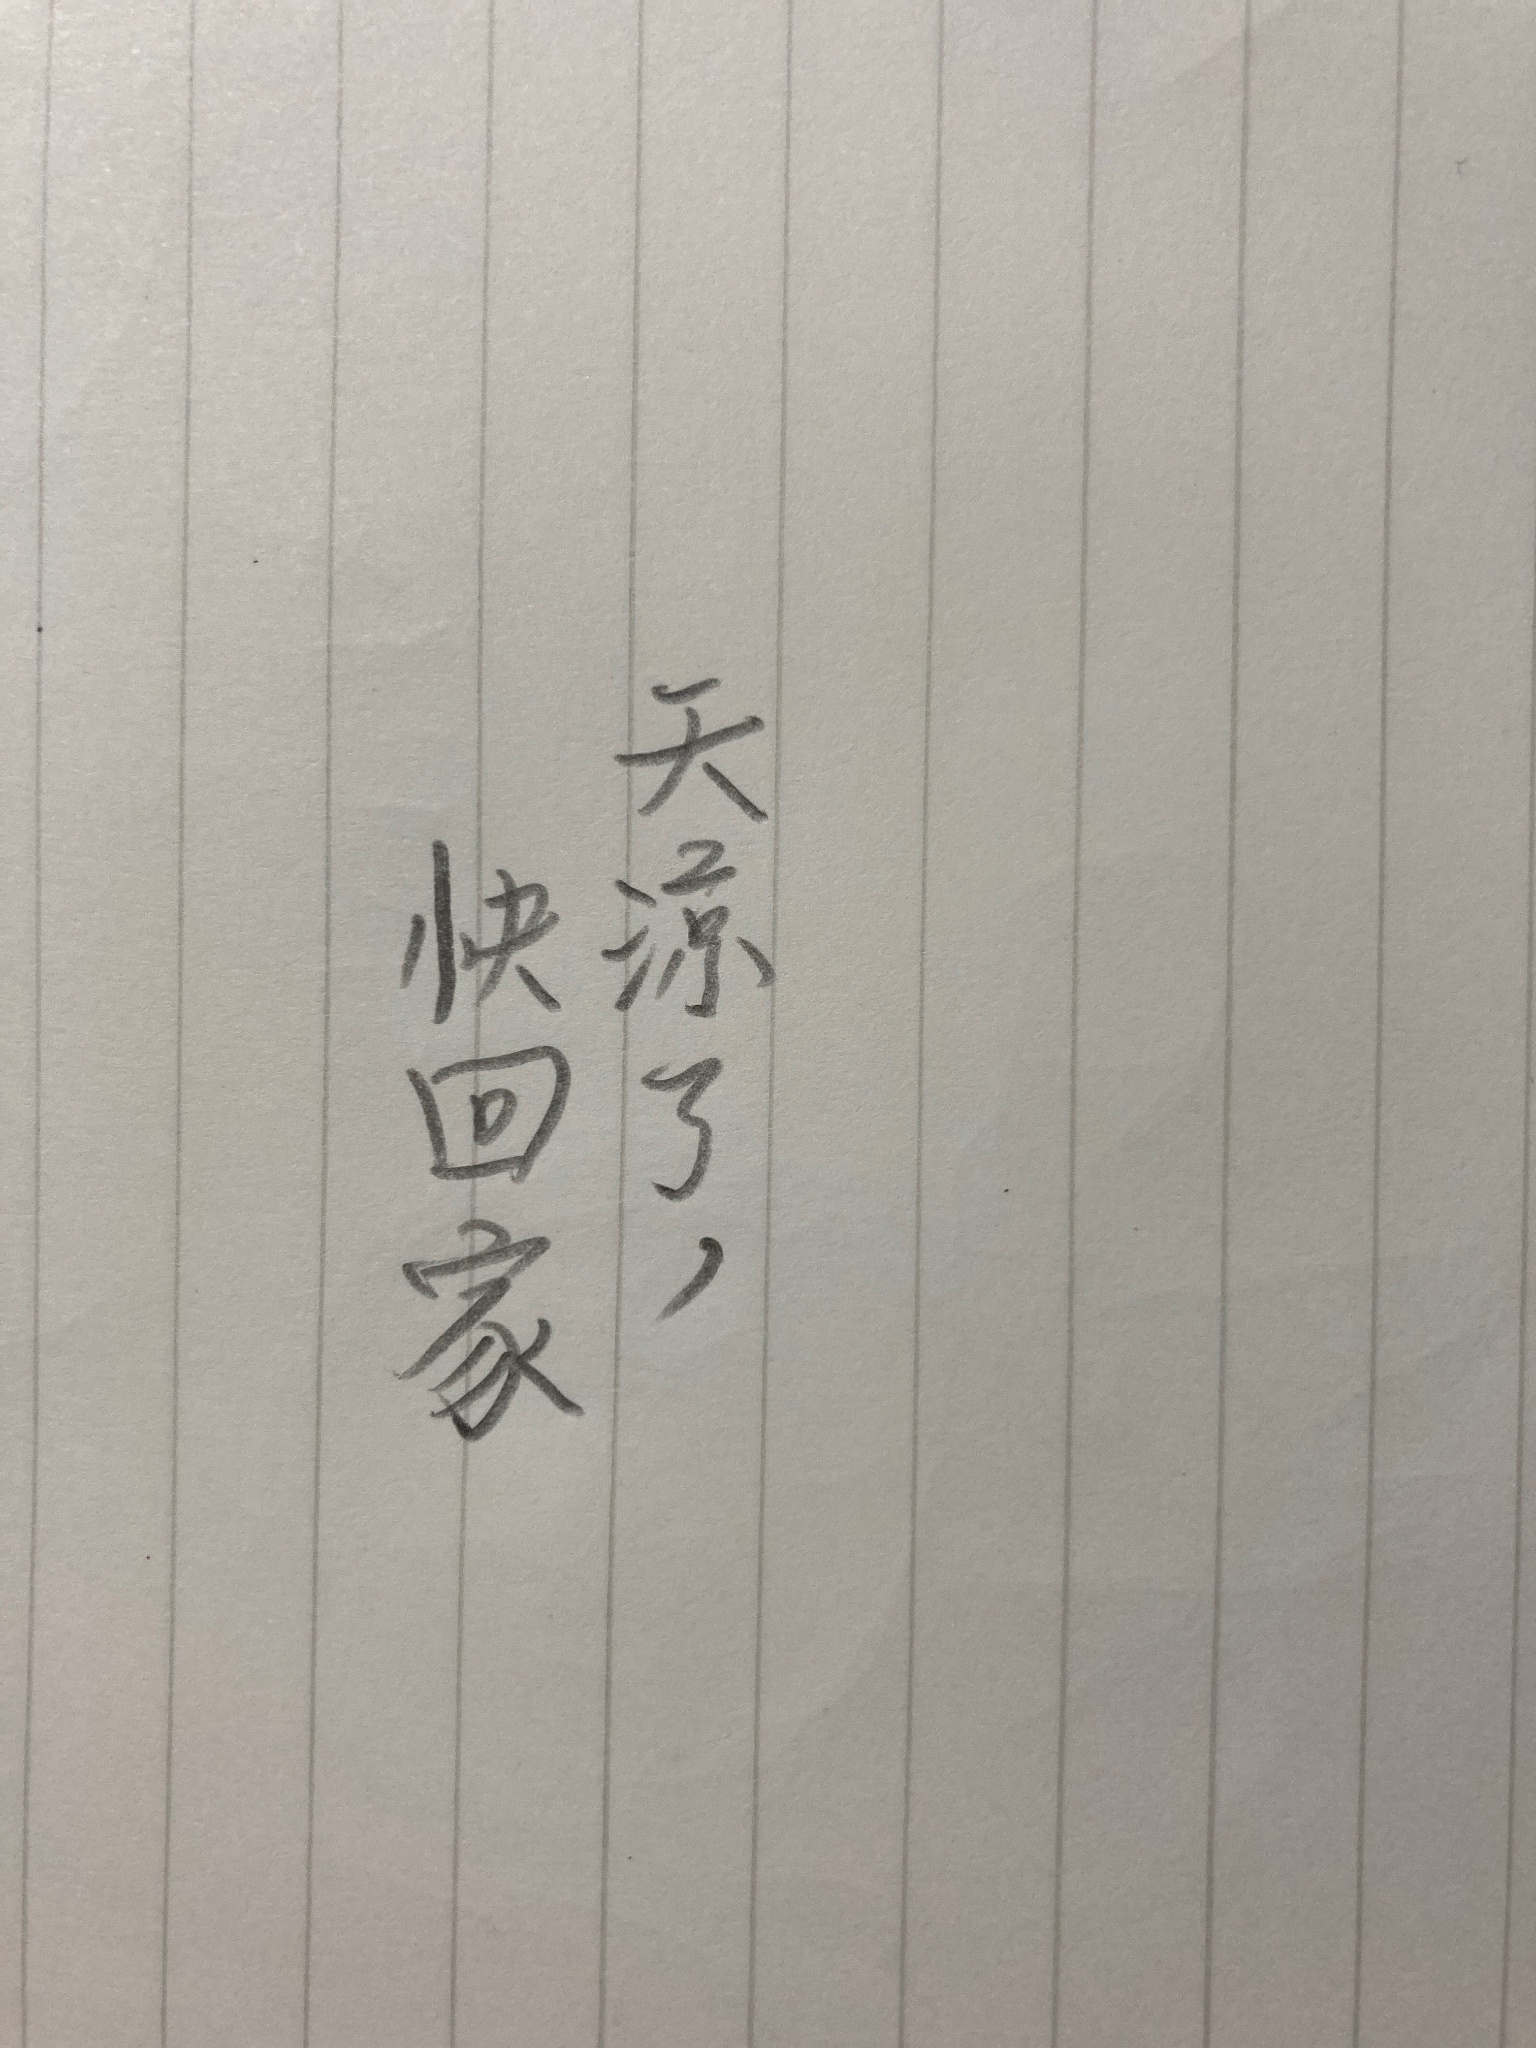 天涼了，
快回家